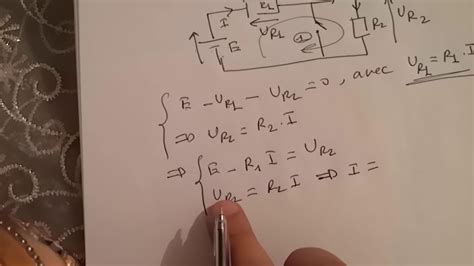 R1
I
E
U_R1
①
R2
U_R2
E - U_R1 - U_R2 = 0, avec U_R1 = R1 . I
⇒ U_R2 = R2 . I
⇒ E - R1 I = U_R2
U_R2 = R2 I ⇒ I =